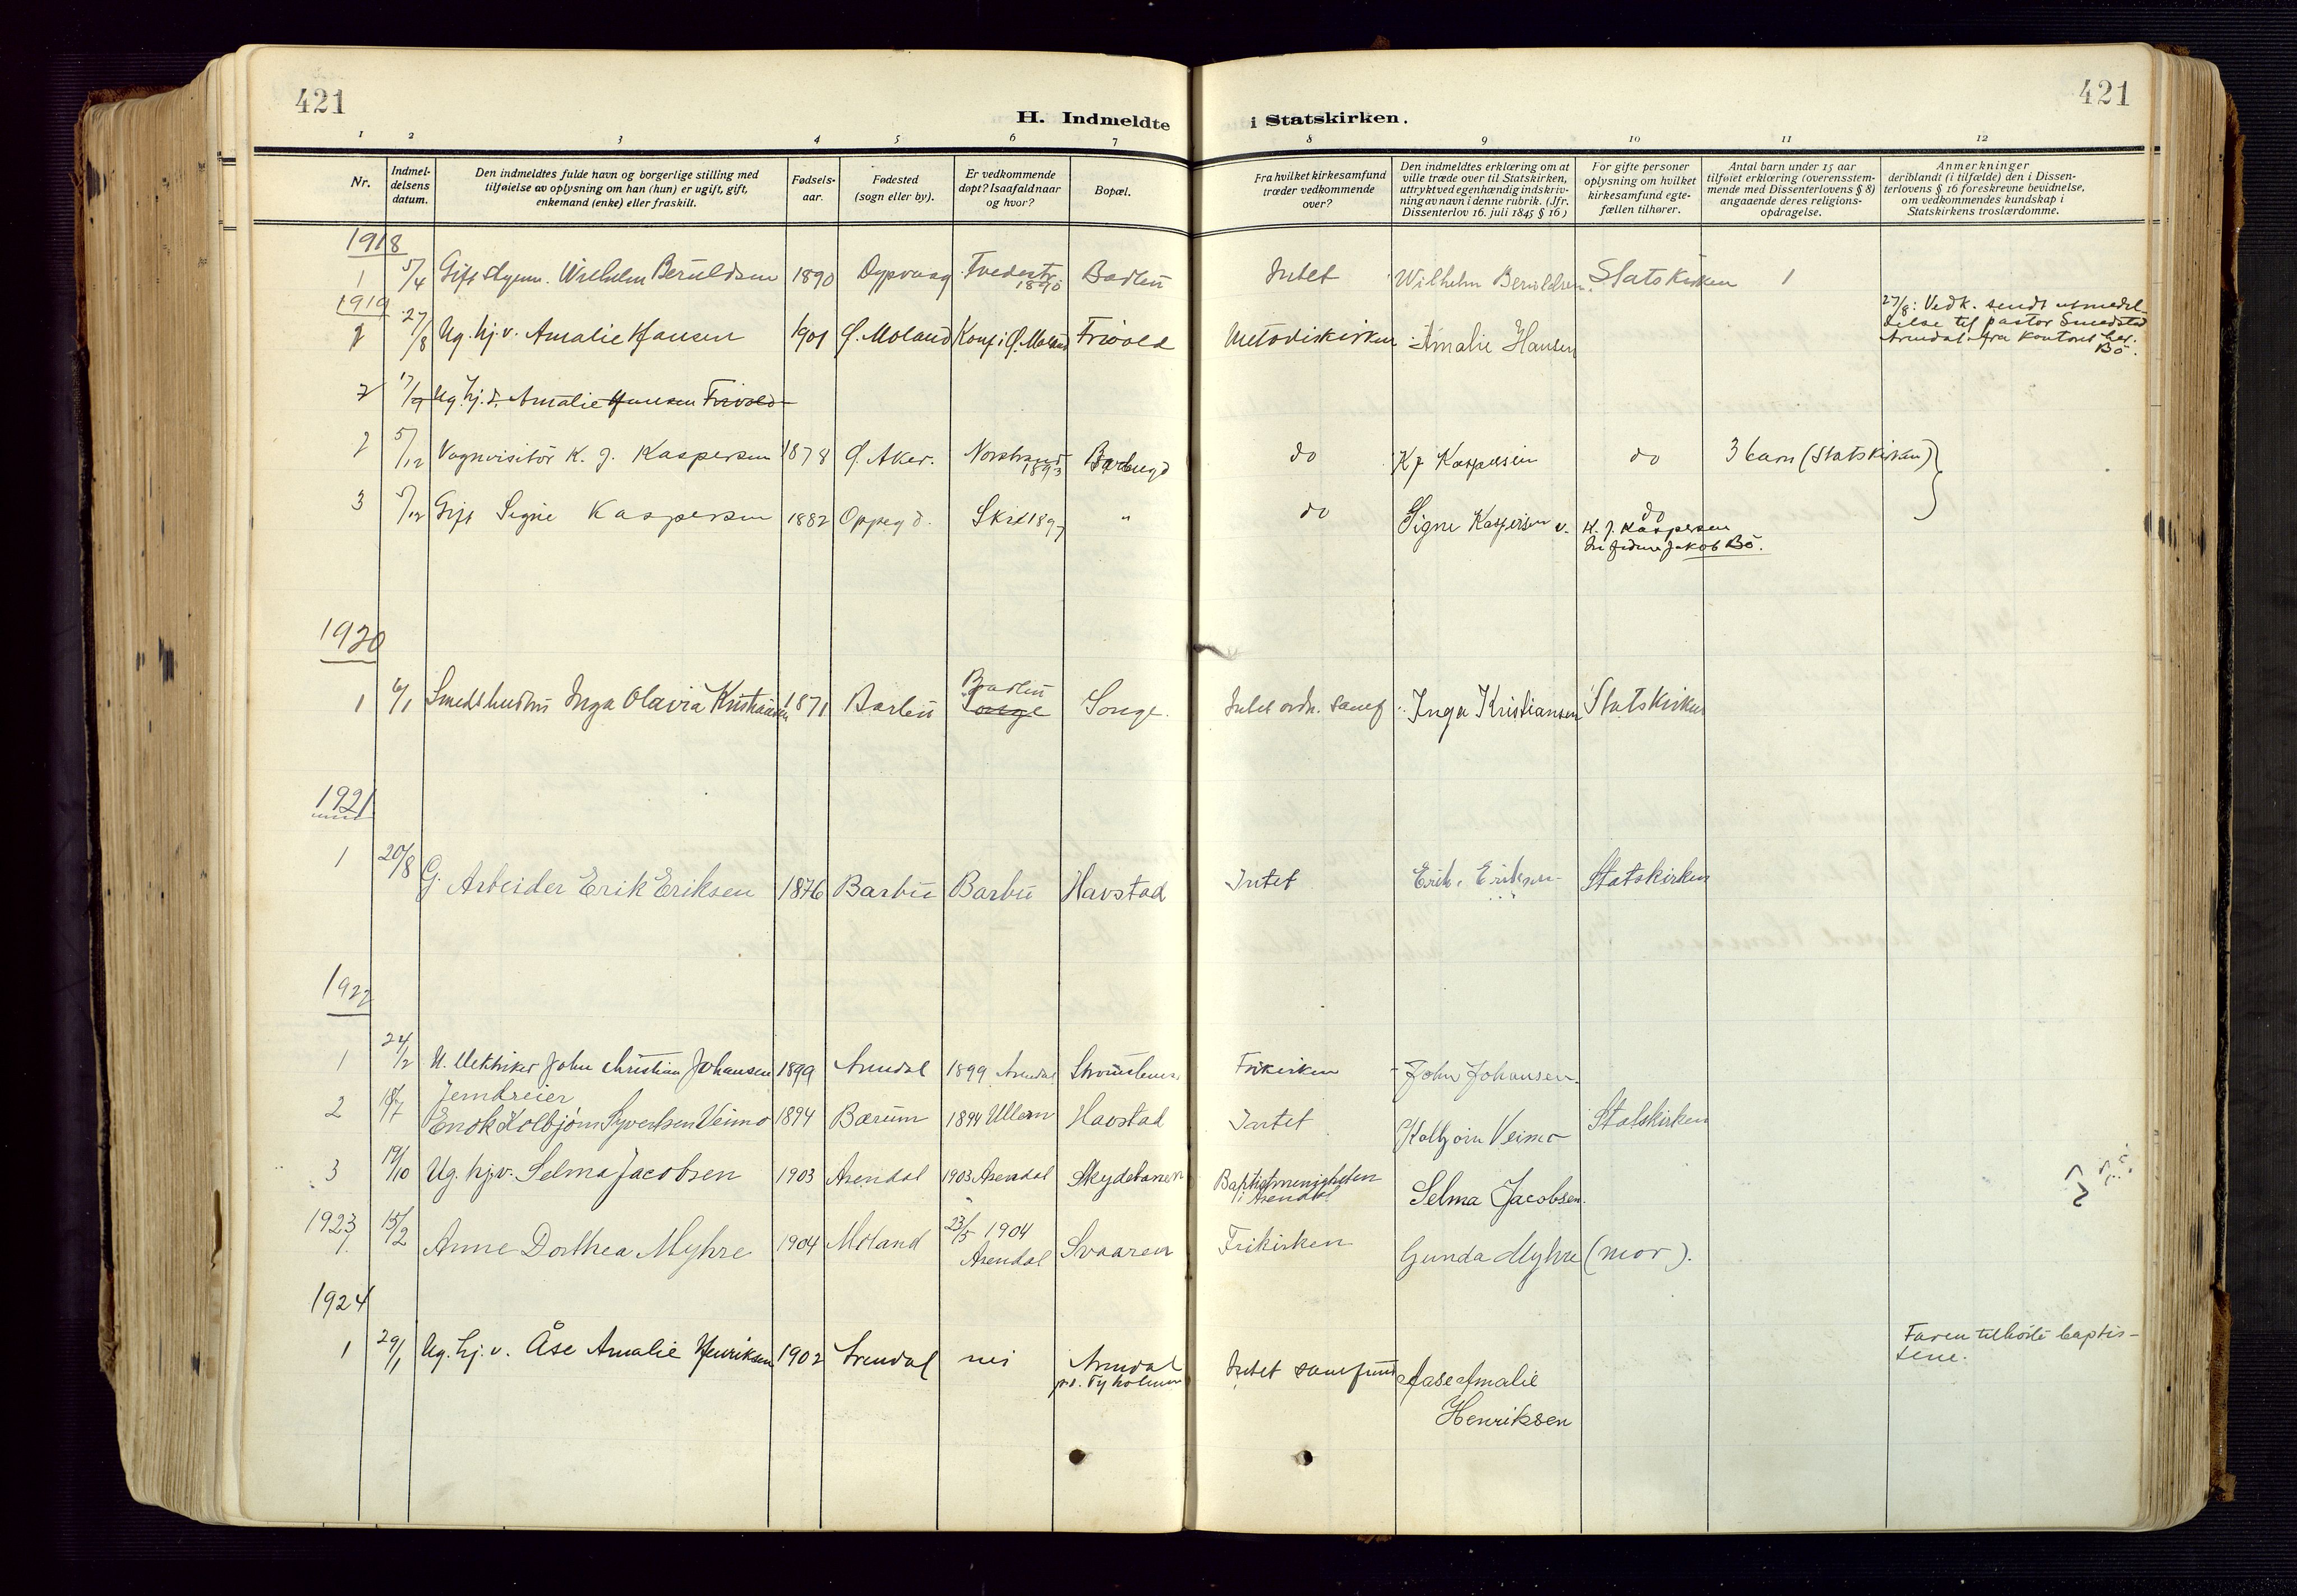 421
421
H. Indmeldte i Statskirken.
1 2 3 4 5 6 7 8 9 10 11 12
Nr.
Indmel-
delsens
datum.
Den indmeldtes fulde navn og borgerlige stilling med
tilføielse av oplysning om han (hun) er ugift, gift,
enkemand (enke) eller fraskilt.
Fødsels-
aar.
Fødested
(sogn eller by).
Er vedkommende
døpt? Isaafald naar
og hvor?
Bopæl.
Fra hvilket kirkesamfund
træder vedkommende
over?
Den indmeldtes erklæring om at
ville træde over til Statskirken,
uttrykt ved egenhændig indskriv-
ning av navn i denne rubrik. (Jfr.
Dissenterlov 16. juli 1845 § 16)
For gifte personer
oplysning om hvilket
kirkesamfund egte-
fællen tilhører.
Antal barn under 15 aar
tilføiet erklæring (overensstem-
mende med Dissenterlovens § 8)
angaaende deres religions-
opdragelse.
Anmerkninger
deriblandt (i tilfælde) den i Dissen-
terlovens § 16 foreskrevne bevidnelse,
om vedkommendes kundskap i
Statskirkens troslærdomme.
1918
1 5/4 Gift Wilhelm Beruldsen 1890 Dypvaag Tvedestr. 1890 Barbu Intet Wilhelm Beruldsen. Statskirken 1
1919
27/8 Ug. hj.v. Amalie Hansen 1901 Ø. Moland Konf. i Ø. Moland Frivold Metodistkirken Amalie Hansen
27/8: Vedk. sendt utmeldelse
til pastor Smedstad
Arendal fra kontoret her.
Bö.
2 17/9 Ug. hj.v. Amalie Hansen Frivold
2 5/12 Vognvisitør K. J. Kaspersen 1878 Ø. Aker. Norstrand 1893 Barbugd do K J Kaspersen do 3 barn (Statskirken)
3 5/12 Gift Signe Kaspersen 1882 Oppegd. Ski 1897 " do Signe Kaspersen v. do
K. J. Kaspersen
Jakob Bö.
1920
1 6/1 Smedshustru Inga Olavia Kristiansen 1871 Barbu Barbu Songe Songe. Intet ordn. samf. Inga Kristiansen Statskirken
1921
1 20/8 G. Arbeider Erik Eriksen 1876 Barbu Barbu Havstad Intet Erik Eriksen Statskirken
1922
1 24/2 U. Elektriker John Christian Johansen 1899 Arendal 1899 Arendal Strømsbu Frikirken John Johansen.
2 18/7 Jerndreier
Enok Kolbjørn Syvertsen Veimo 1894 Bærum 1894 Ullern Havstad Intet Kolbjørn Veimo Statskirken
3 19/10 Ug. hj.v. Selma Jacobsen 1903 Arendal 1903 Arendal Skydebanen Baptistmenigheten
i Arendal Selma Jacobsen.
1923
1. 15/2 Anne Dorthea Myhre 1904 Moland 23/5 1904
Arendal Svaaren Frikirken Gunda Myhre (mor).
1924
1 29/1 Ug. hj.v. Åse Amalie Henriksen 1902 Arendal nei Arendal
p.t. Tyholmen Intet samfund Aase Amalie
Henriksen
Faren tilhörte baptis-
tene.